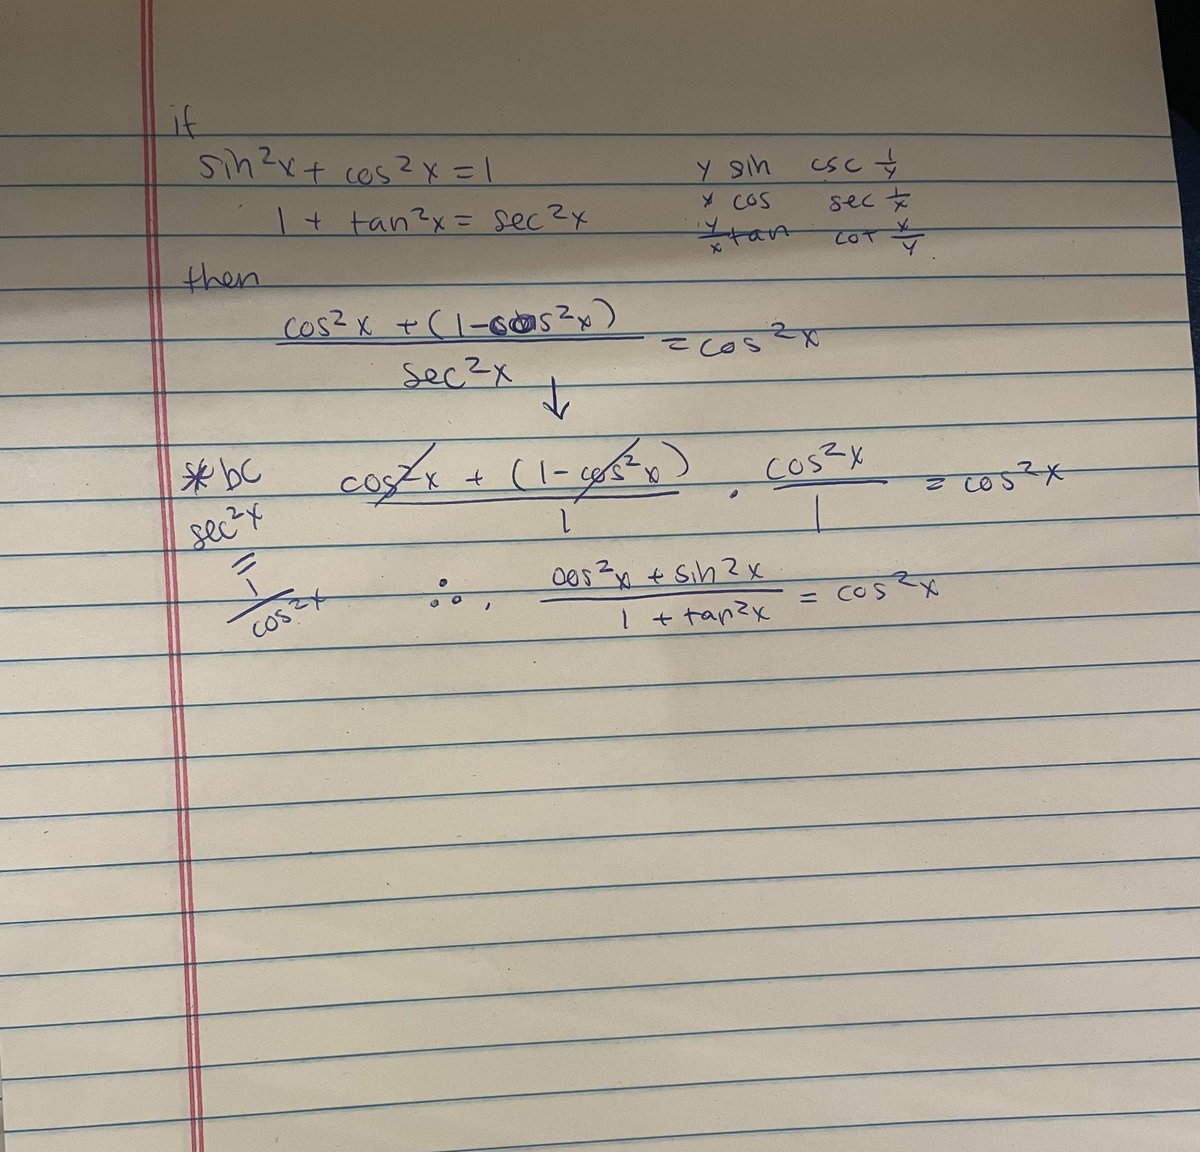 if
sin²x + cos²x = 1
1 + tan²x = sec²x
y sin csc 1/y
x cos sec 1/x
y/x tan cot x/y
then
cos²x + (1-cos²x) / sec²x = cos²x
↓
* bc sec²x = 1/cos²x
cos²x + (1-cos²x) / 1 · cos²x / 1 = cos²x
∴, cos²x + sin²x / 1 + tan²x = cos²x